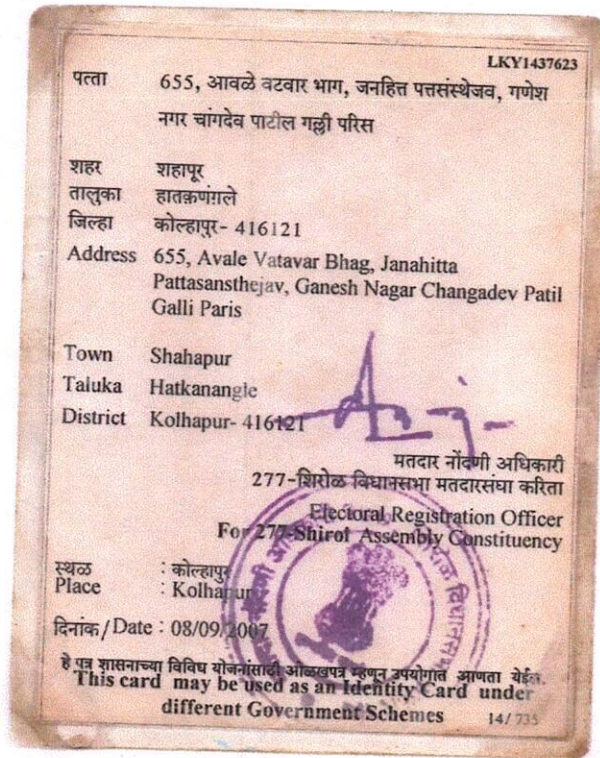 LKY1437623
पत्ता 655, आवळे वटवार भाग, जनहित्त पत्तसंस्थेजव, गणेश
नगर चांगदेव पाटील गल्ली परिस
शहर शहापूर
तालुका हातकणंगले
जिल्हा कोल्हापुर- 416121
Address 655, Avale Vatavar Bhag, Janahitta
Pattasansthejav, Ganesh Nagar Changadev Patil
Galli Paris
Town Shahapur
Taluka Hatkanangle
District Kolhapur- 416121
मतदार नोंदणी अधिकारी
277-शिरोळ विधानसभा मतदारसंघा करिता
Electoral Registration Officer
For 277-Shirol Assembly Constituency
स्थळ : कोल्हापुर
Place : Kolhapur
दिनांक/Date : 08/09/2007
हे पत्र शासनाच्या विविध योजनांसाठी ओळखपत्र म्हणून उपयोगात आणता येईल.
This card may be used as an Identity Card under
different Government Schemes 14/ 735